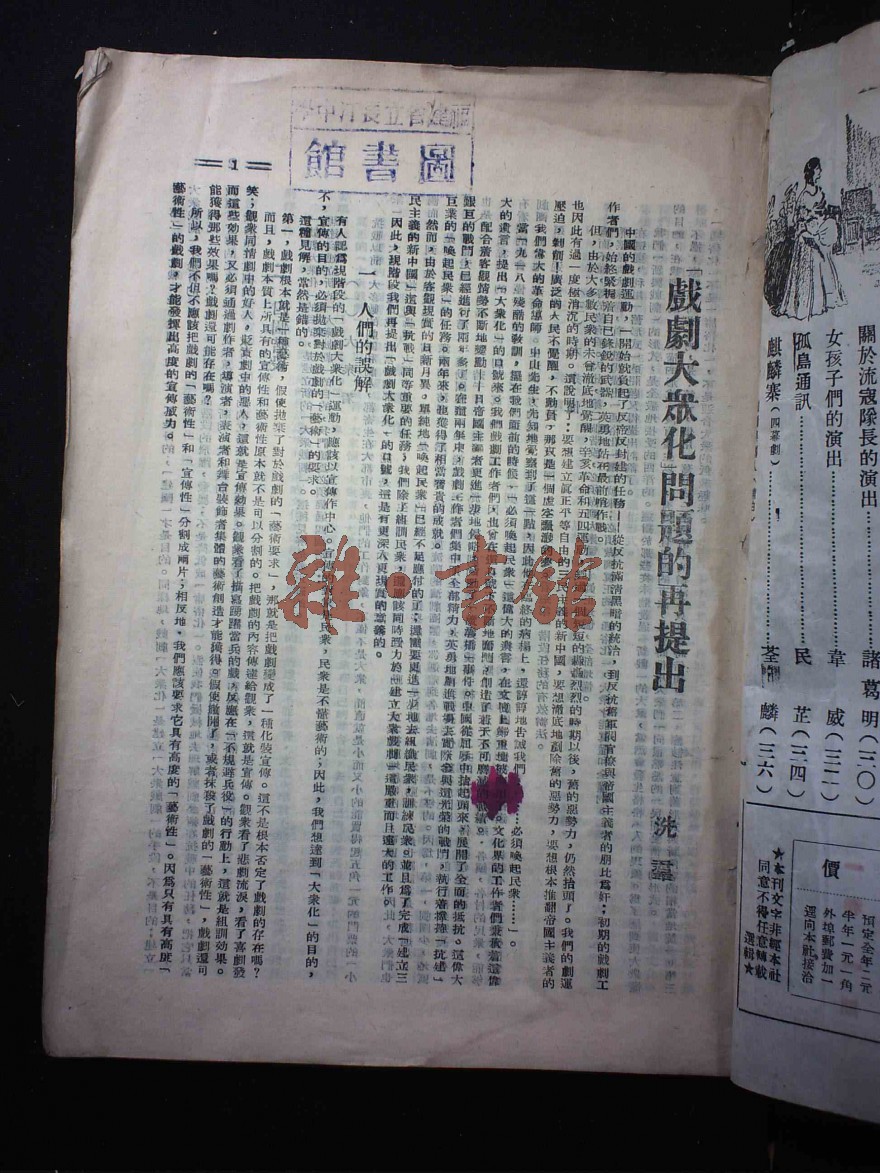 圖書館
1
「戲劇大衆化」問題的再提出
洗羣
中國的戲劇運動，一開始就負起了反帝反封建的任務——從反抗滿清黑暗的統治，到反抗舊軍閥官僚與帝國主義者的朋比爲奸；初期的戲劇工
作者們，始終緊握着自己鋒銳的武器，英勇地站在最前哨作戰。
但，由於大多數民衆的未曾澈底地覺醒，辛亥革命和五四運動
的時期以後，舊的惡勢力，仍然抬頭了。我們的劇運
也因此有過一度極消沉的時期。這說明了：要想建立眞正平等自由的
主義的新中國，要想澈底地剷除舊的惡勢力，要想根本推翻帝國主義者的
壓迫，剝削！廣泛的人民不覺醒，不動員，那眞是一個
我們偉大的革命導師。中山先生，先知地覺察到了這一點，因此他
的病榻上，還諄諄地告誡我們
必須喚起民衆……」。
當「九一八」殘酷的敎訓，擺在我們面前的時候，「必須喚起民衆」這偉大的
大的遺言，提出「大衆化」的口號來。我們戲劇工作者們
配合着客觀情勢不斷地變動，
艱巨的戰鬥，已經進行了兩年多了。在這兩年中，戲劇工作者們集中了全部精力，英勇地
巨業的「喚起民衆」的任務。兩年來，也獲得了相當寶貴的成就。
然而，由於客觀現實的日新月異，單純地「喚起民衆」已經不足應付的了；還需要更進一步地去組織民衆，訓練民衆。並且爲了完成「建立三
民主義的新中國」這與「抗戰」同等重要的任務，我們除了組訓民衆，還應該同時努力於「建立大衆戲劇」這嚴重而且遠大的工作。
因此，現階段我們再提出「戲劇大衆化」的口號，還是有更深入更現實的意義的。
一　人們的誤解
有人認爲現階段的「戲劇大衆化」運動，應該以宣傳作中心。宣傳
民衆，民衆是不懂藝術的；因此，我們想達到「大衆化」的目的，
不，宣傳的目的，必須拋棄對於戲劇的「藝術」的要求。
這種見解，當然是錯的。
第一，戲劇根本就是一種藝術，假使拋棄了對於戲劇的「藝術要求」，那就是把戲劇變成了一種化裝宣傳。這不是根本否定了戲劇的存在嗎？
而且，戲劇本質上所具有的宣傳性和藝術性原本就不是可以分割的。把戲劇的內容傳達給觀衆，這就是宣傳。觀衆看了悲劇流淚，看了喜劇發
笑；觀衆同情劇中的好人，貶責劇中的惡人，這就是宣傳効果。觀衆看了描寫踴躍當兵的戲，反應在「不規避兵役」的行動上，這就是組訓効果。
而這些効果，又必須通過劇作者，導演者，表演者和舞台裝飾者集體的藝術創造才能獲得。假使撇開了，或者抹殺了戲劇的「藝術性」，戲劇還可
能獲得那些効果嗎？戲劇還可能存在嗎？
所以，我們不但不應該把戲劇的「藝術性」和「宣傳性」分割成兩片；相反地，我們應該要求它具有高度的「藝術性」。因爲只有具有高度「
藝術性」的戲劇，才能發揮出高度的宣傳威力。
雜書館
關於流寇隊長的演出
諸葛明（三〇）
女孩子們的演出
韋威（三二）
孤島通訊
民芷（三四）
麒麟寨（四幕劇）
荃麟（三六）
價
預定全年二元
半年一元一角
外埠郵費加一
逕向本社接洽
★本刊文字非經本社
同意不得任意轉載
選輯★